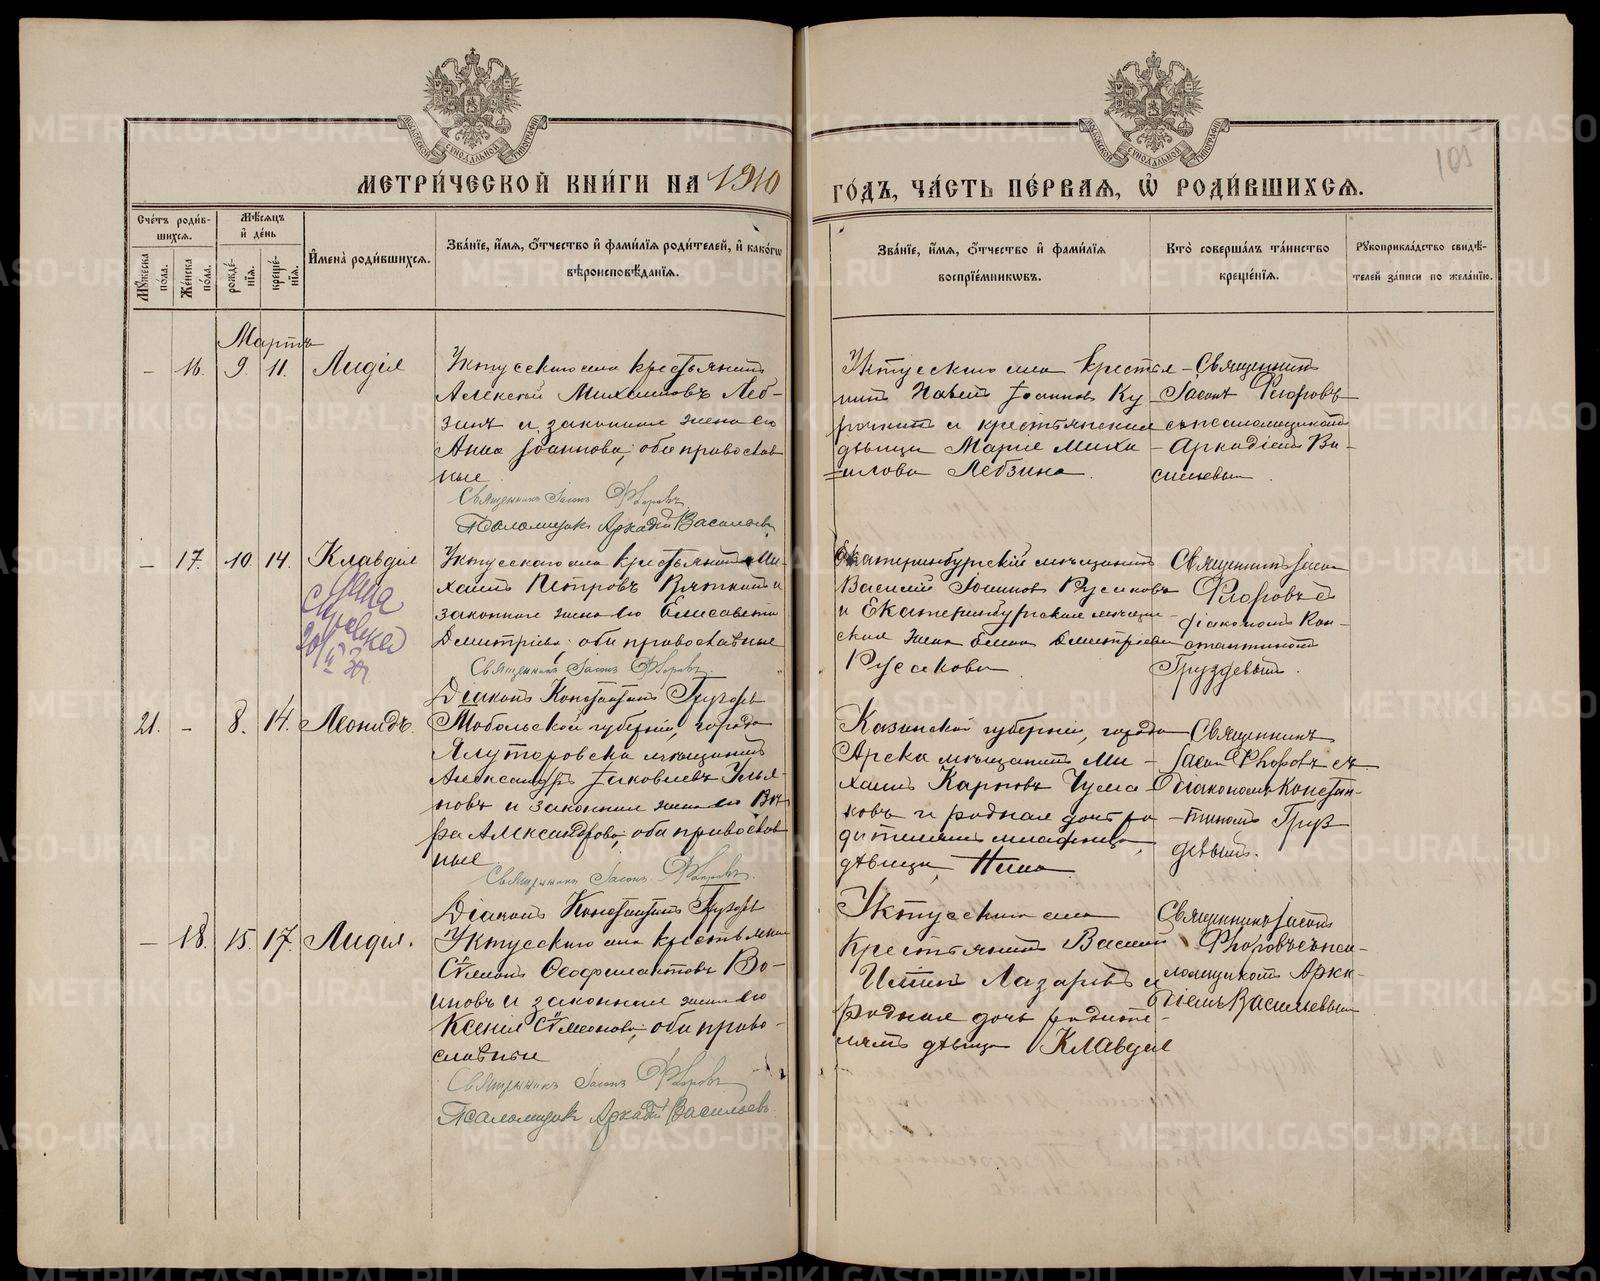 МЕТРИ́ЧЕСКОЙ КНИ́ГИ НА 1910
ГО́ДЪ, ЧА́СТЬ ПЕ́РВАѦ, Ѡ҆ РОДИ́ВШИХСѦ.
109
Сче́тъ роди́в-
шихсѧ.
Мꙋ́жеска по́ла.
Же́нска по́ла.
Мѣ́сѧцъ и҆ де́нь
рожде́-
нїѧ.
креще́-
нїѧ.
И҆мена̀ роди́вшихсѧ.
Зва́нїе, и҆́мѧ, ѻ҆́тчество и҆ фами́лїѧ роди́телей, и҆ како́гѡ
вѣроисповѣ́данїѧ.
Зва́нїе, и҆́мѧ, ѻ҆́тчество и҆ фами́лїѧ
воспрїе́мникѡвъ.
Кто̀ соверша́лъ та́инство
креще́нїѧ.
Рꙋкоприкла́дство свидѣ́-
телей за́писи по жела́нїю.
Мартъ
— 16. 9 11. Лидія
Уктусскаго села крестьянинъ
Алексѣй Михаиловъ Леб-
зинъ и законная жена его
Анна Іоаннова, оба православ
ные
Священникъ Іасонъ Флоровъ
Псаломщикъ Аркадій Васильевъ
Уктусскаго села крестья-
нинъ Павелъ Іоанновъ Ку
рочкинъ и крестьянская
дѣвица Марія Миха
=илова Лебзина.
Священникъ
Іасонъ Флоровъ
съ псаломщикомъ
Аркадіемъ Ва-
сильевымъ
— 17. 10. 14. Клавдія
Уктусскаго села крестьянинъ Ми-
хаилъ Петровъ Вяткинъ и
законная жена его Елисавета
Дмитріева, оба православные
Священникъ Іасонъ Флоровъ.
Діаконъ Константинъ Груздевъ
Екатеринбургскій мѣщанинъ
Василій Іоанновъ Русаковъ
и Екатеринбургская мѣщан-
ская жена Дмитріева
Русакова
Священникъ Іасонъ
Флоровъ съ
діакономъ Кон-
стантиномъ
Груздевымъ.
21. — 8. 14. Леонидъ.
Тобольской губерніи, города
Ялуторовска мѣщанинъ
Александръ Іаковлевъ Улья-
новъ и законная жена его Вѣ-
ра Александрова, оба православ
ные
Священникъ Іасонъ Флоровъ.
Діаконъ Константинъ Груздевъ
Казанской губерніи, города
Арска мѣщанинъ Ми-
хаилъ Карповъ Чума
ковъ и родная дочь ро
дителямъ младенца,
дѣвица, Нина
Священникъ
Іасонъ Флоровъ съ
діакономъ Констан-
тиномъ Груз
девымъ.
— 18. 15. 17. Лидія.
Уктусскаго села крестьянинъ
Сѵмеонъ Ѳеофилактовъ Во-
иновъ и законная жена его
Ксенія Сѵмеонова, оба право-
славные
Священникъ Іасонъ Флоровъ
Псаломщикъ Аркадій Васильевъ
Уктусскаго села
крестьянинъ Василій
Лазаревъ и
родная дочь родите-
лямъ дѣвица Клавдія
Священникъ Іасонъ
Флоровъ съ пса-
ломщикомъ Арка-
діемъ Васильевымъ
METRIKI.GASO-URAL.RU